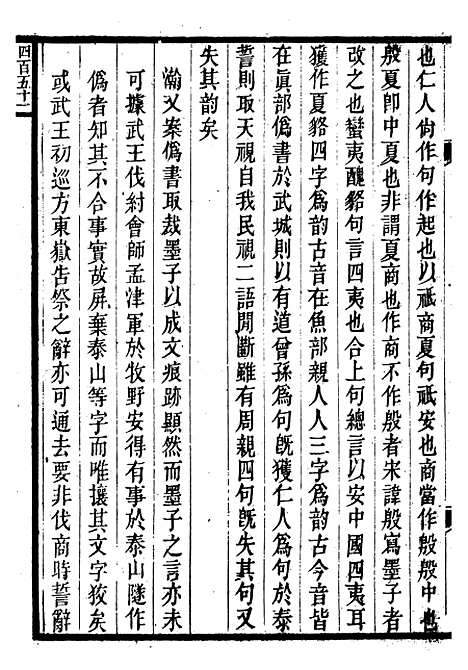 也仁人尙作句作起也以祗商夏句祗安也商當作殷殷中也
殷夏卽中夏也非謂夏商也作商不作殷者宋諱殷寫墨子者
改之也蠻夷醜貉句言四夷也合上句總言以安中國四夷耳
獲作夏貉四字爲韵古音在魚部親人人三字爲韵古今音皆
在眞部僞書於武城則以有道曾孫爲句旣獲仁人爲句於泰
誓則取天視自我民視二語閒斷雖有周親四句旣失其句又
失其韵矣
瀚又案僞書取裁墨子以成文痕跡顯然而墨子之言亦未
可據武王伐紂會師孟津軍於牧野安得有事於泰山隧作
僞者知其不合事實故屏棄泰山等字而唯攘其文字狡矣
或武王初巡方東嶽告祭之辭亦可通去要非伐商時誓辭
四百五十二